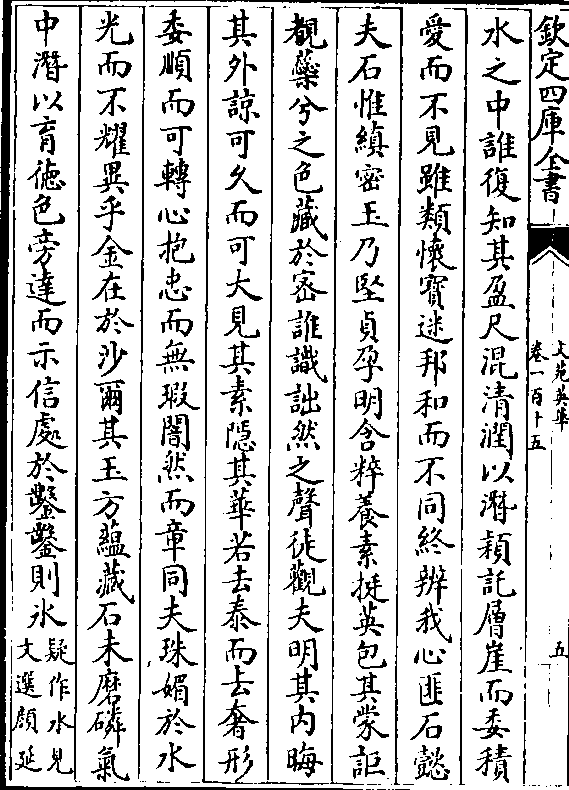 欽定四庫全書
文苑英華
卷一百十五
五
水之中誰復知其盈尺混清潤以濳頴託層崖而委積
愛而不見雖類懷寶迷邦和而不同終辨我心匪石懿
夫石惟縝密玉乃堅貞孕明含粹養素挺英包其蒙詎
覩藥兮之色藏於密誰識詘然之聲徒觀夫明其内晦
其外諒可久而可大見其素隠其華若去泰而去奢形
委順而可轉心抱忠而無瑕闇然而章同夫珠媚於水
光而不耀異乎金在於沙爾其玉方蘊藏石未磨磷氣
中潛以育徳色旁達而示信處於鑿鑿則氷
疑作水見
文選顔延